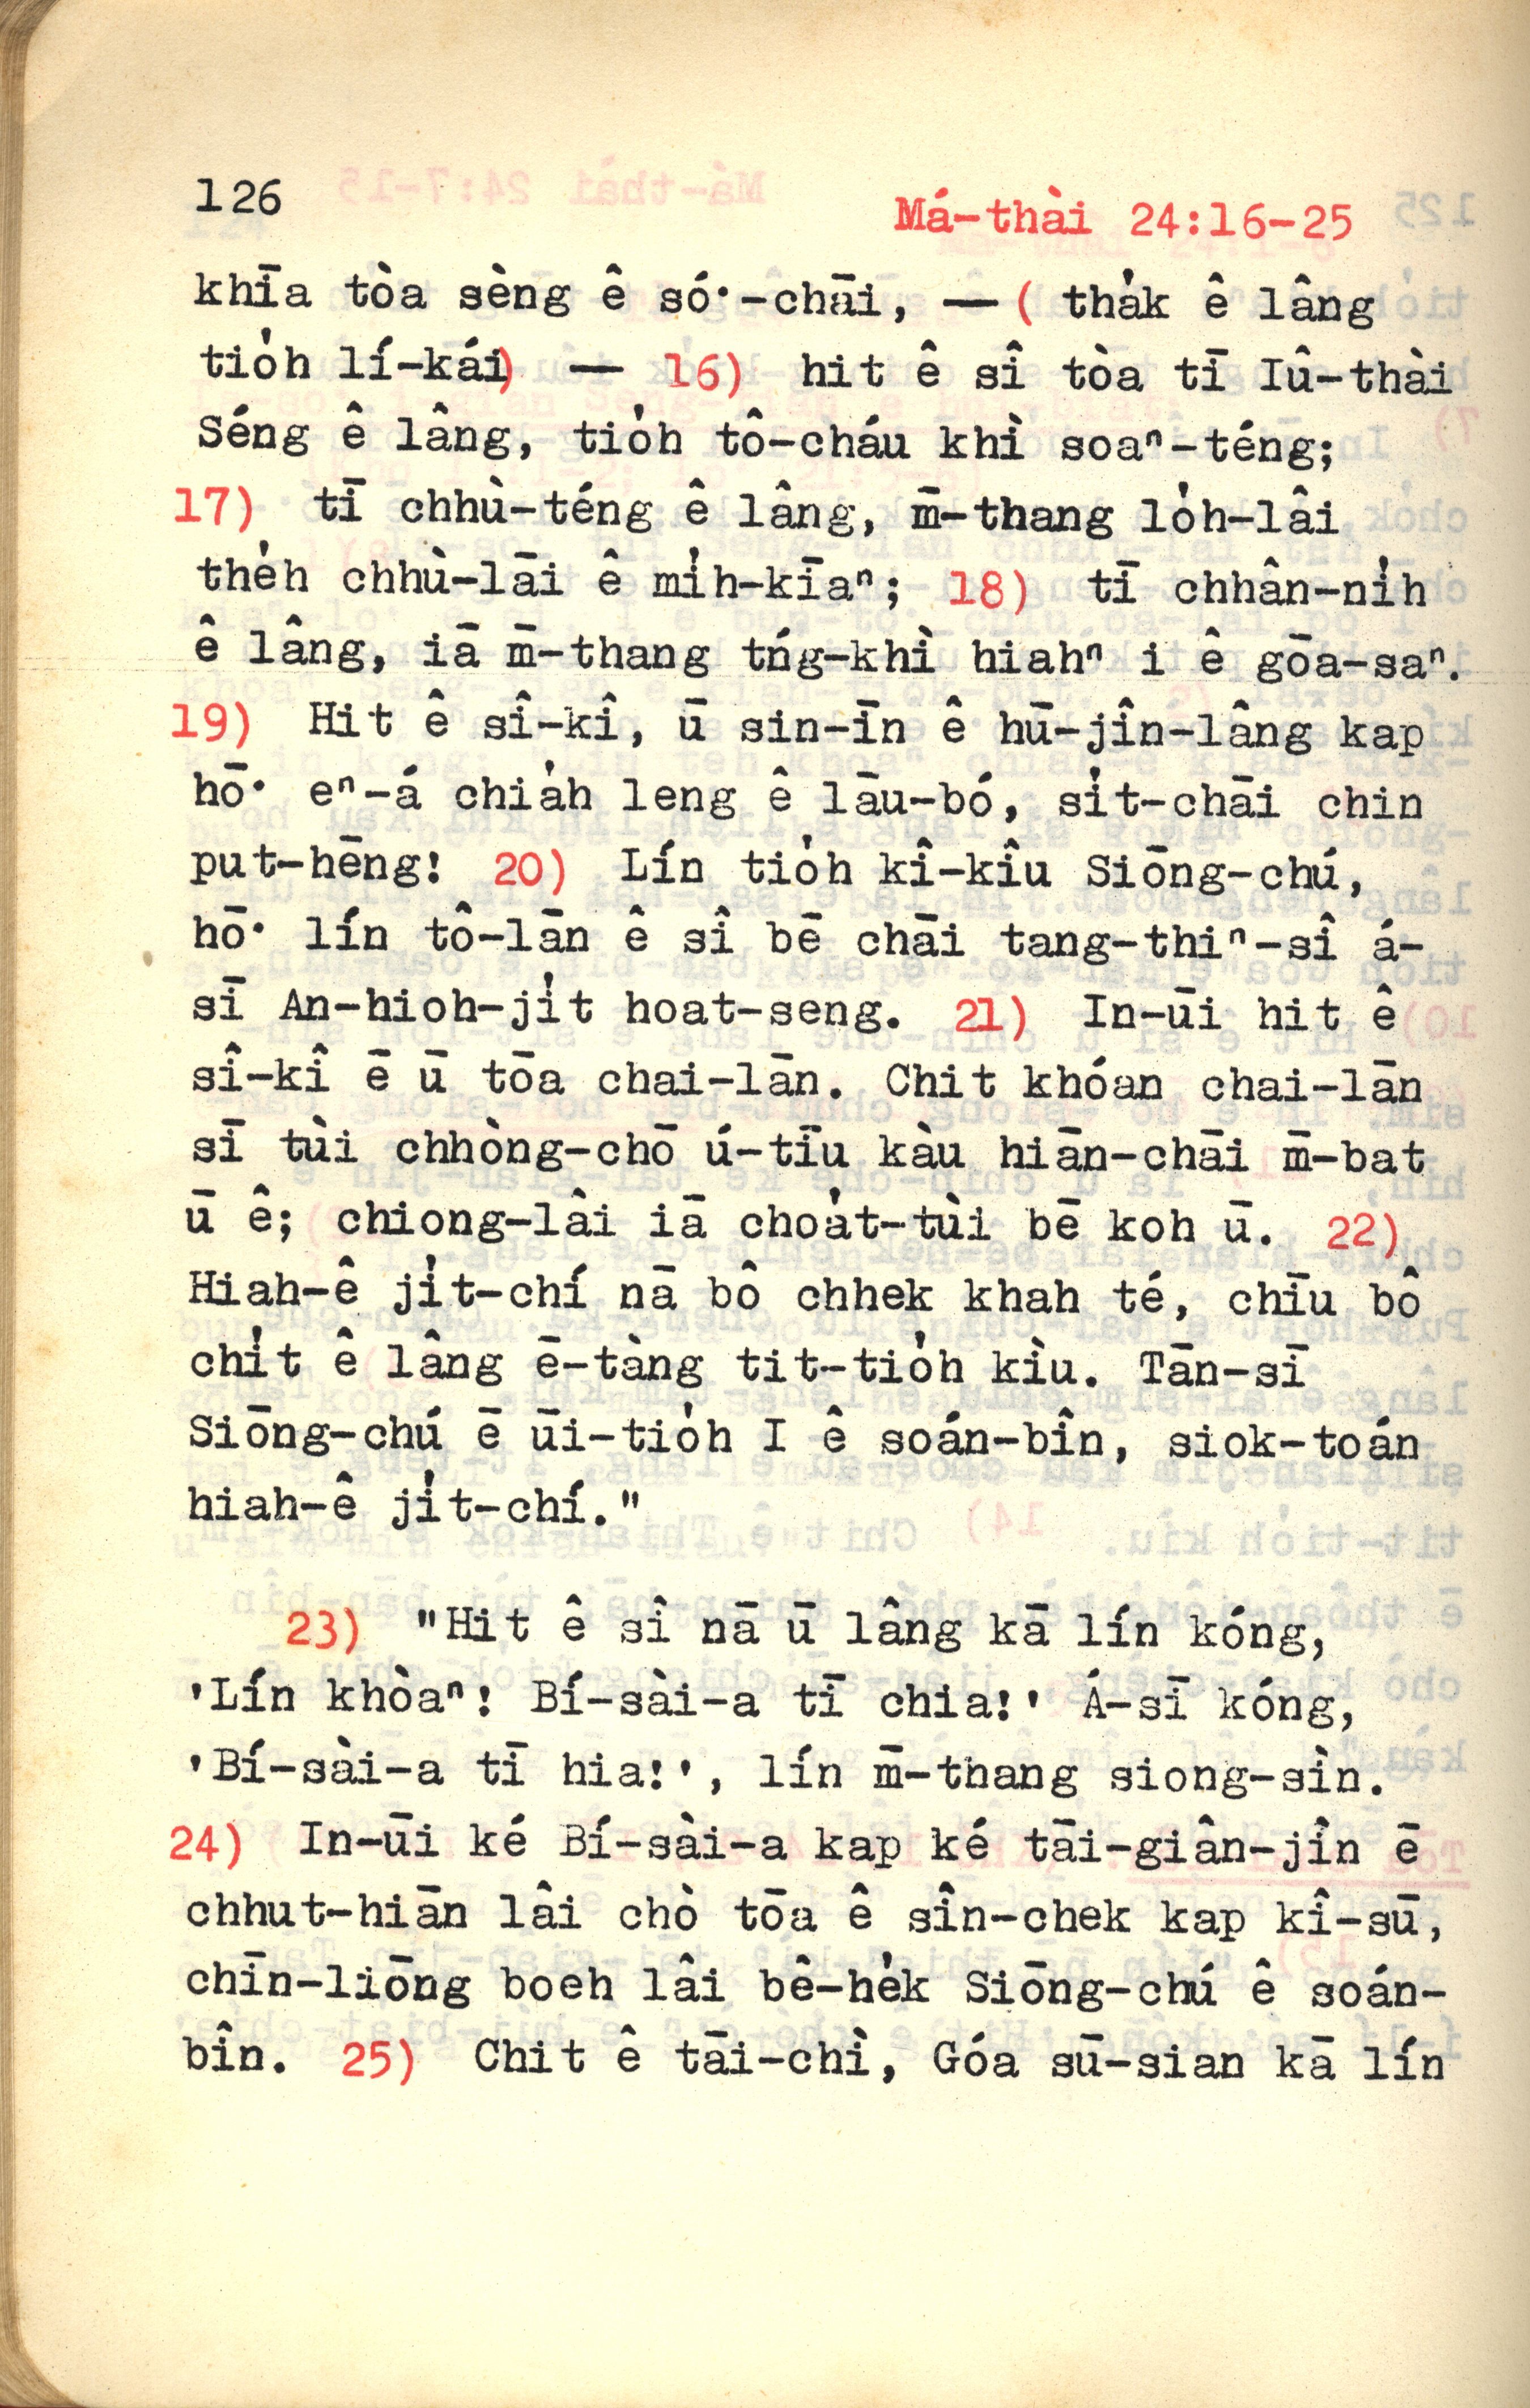 126
Má-thài 24:16-25
khīa tòa sèng ê só·-chāi, — ( tha̍k ê lâng
tio̍h lí-kái) — 16) hit ê sî tòa tī Iû-thài
Séng ê lâng, tio̍h tô-cháu khì soaⁿ-téng;
17) tī chhù-téng ê lâng, m̄-thang lo̍h-lâi
the̍h chhù-lāi ê mi̍h-kīaⁿ; 18) tī chhân-ni̍h
ê lâng, iā m̄-thang tńg-khì hiahⁿ i ê gōa-saⁿ.
19) Hit ê sî-kî, ū sin-īn ê hū-jîn-lâng kap
hō· eⁿ-á chia̍h leng ê lāu-bó, si̍t-chāi chin
put-hēng! 20) Lín tio̍h kî-kîu Siōng-chú,
hō· lín tô-lān ê sî bē chāi tang-thiⁿ-sî á-
sī An-hioh-ji̍t hoat-seng. 21) In-ūi hit ê
sî-kî ē ū tōa chai-lān. Chit khóan chai-lān
sī tùi chhòng-chō ú-tīu kàu hiān-chāi m̄-bat
ū ê; chiong-lâi iā choa̍t-tùi bē koh ū. 22)
Hiah-ê ji̍t-chí nā bô chhek khah té, chīu bô
chi̍t ê lâng ē-tàng tit-tio̍h kìu. Tān-sī
Siōng-chú ē ūi-tio̍h I ê soán-bîn, siok-toán
hiah-ê ji̍t-chí."
23) "Hit ê sî nā ū lâng kā lín kóng,
'Lín khòaⁿ! Bí-sài-a tī chia!' Á-sī kóng,
'Bí-sài-a tī hia!', lín m̄-thang siong-sìn.
24) In-ūi ké Bí-sài-a kap ké tāi-giân-jîn ē
chhut-hiān lâi chò tōa ê sîn-chek kap kî-sū,
chīn-liōng boeh lâi bê-he̍k Siōng-chú ê soán-
bîn. 25) Chit ê tāi-chì, Góa sū-sian kā lín